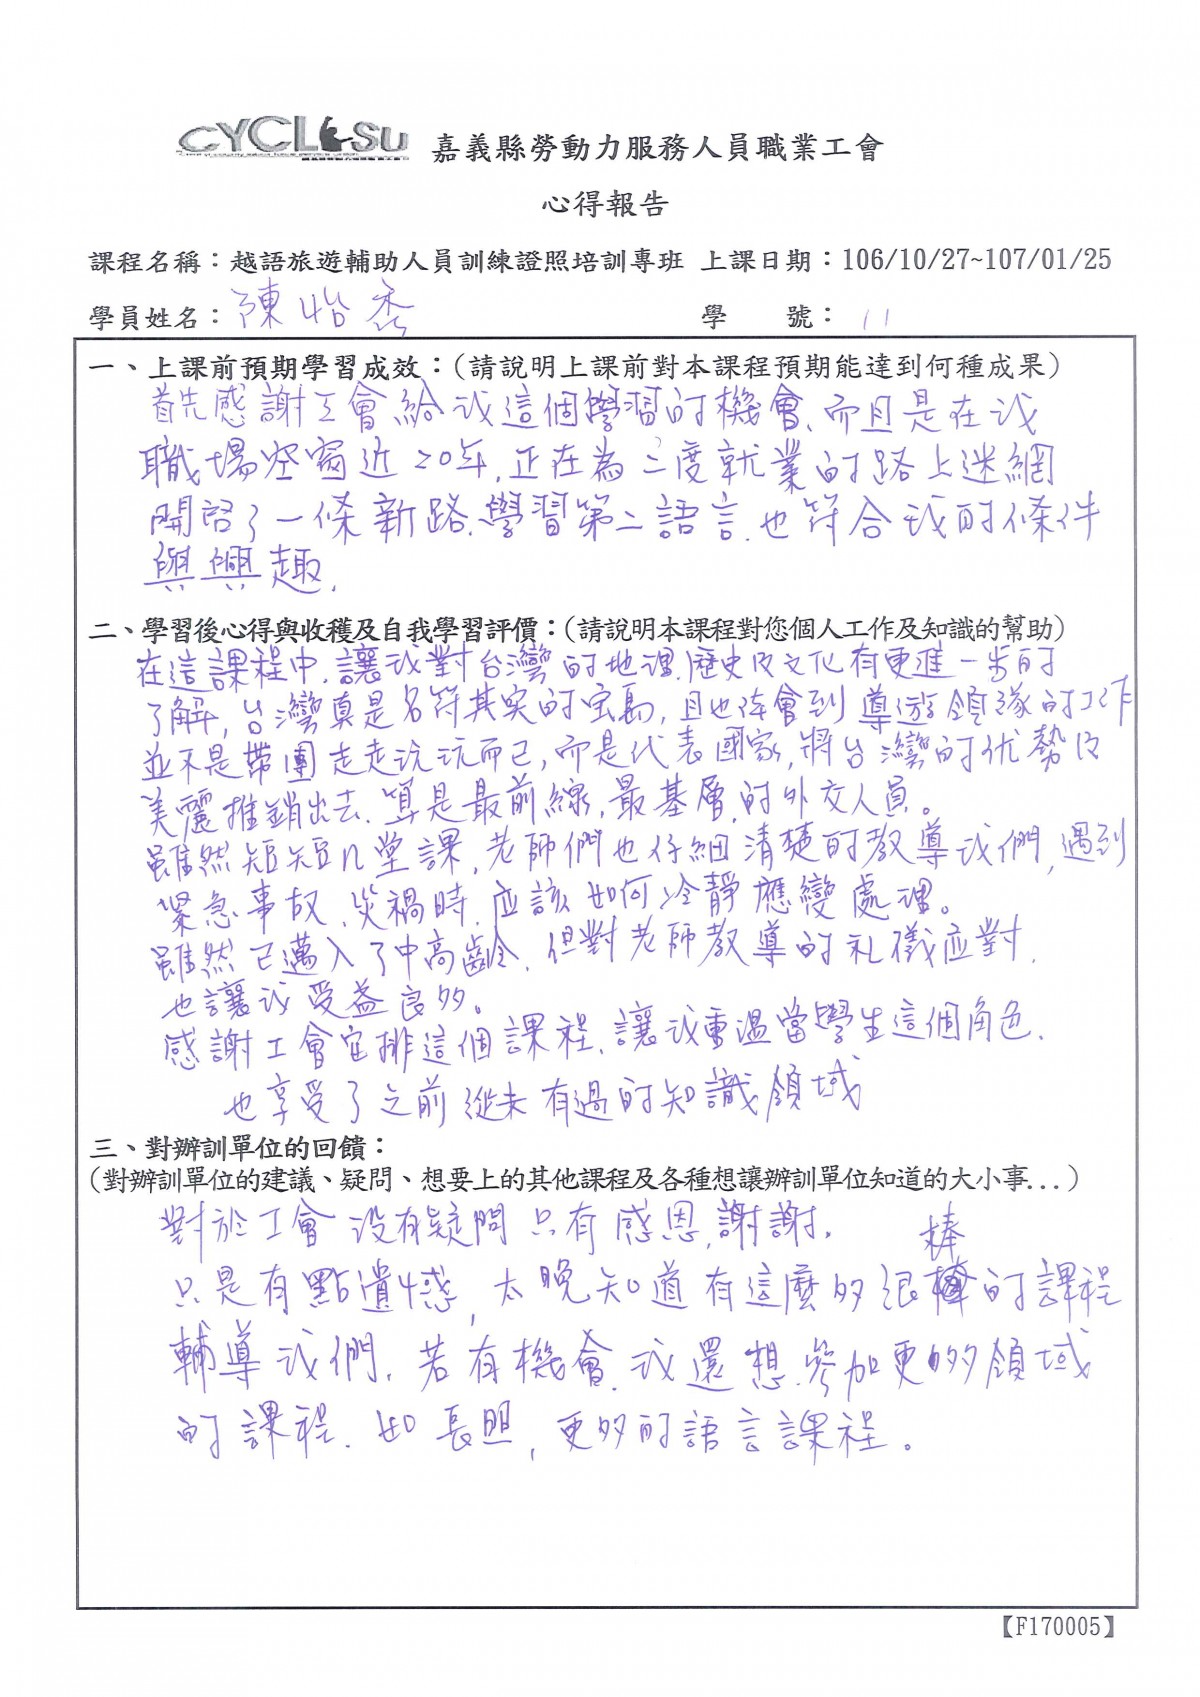 CYCLSU 嘉義縣勞動力服務人員職業工會
心得報告
課程名稱：越語旅遊輔助人員訓練證照培訓專班 上課日期：106/10/27~107/01/25
學員姓名：陳怡秀 學 號：11
一、上課前預期學習成效：(請說明上課前對本課程預期能達到何種成果)
首先感謝工會給我這個學習的機會、而且是在我
職場空窩近20年，正在為二度就業的路上迷網
開啓了一條新路.學習第二語言.也符合我的條件
與興趣.
二、學習後心得與收穫及自我學習評價：(請說明本課程對您個人工作及知識的幫助)
在這課程中.讓我對台灣的地理.歷史及文化有更進一步的
了解，台灣真是名符其实的宝島，且也体會到導遊領隊的工作
並不是帶團走走玩玩而已，而是代表國家，將台灣的优勢及
美麗推銷出去.算是最前線，最基層.的外交人員。
雖然短短几堂課，老師們也仔細清楚的教導我們，遇到
緊急事故.災禍時.应該如何冷靜應變處理。
雖然已邁入了中高齡.但對老師教導的礼儀应對.
也讓我受益良多。
感謝工會安排這個課程.讓我重温當學生這個角色.
也享受了之前從未有過的知識領域
三、對辦訓單位的回饋：
(對辦訓單位的建議、疑問、想要上的其他課程及各種想讓辦訓單位知道的大小事...)
對於工會没有疑問只有感恩.謝謝.
只是有點遺憾，太晚知道有這麼多很棒的課程
輔導我們.若有機會.我還想.參加更多的領域
的課程.如長照，更多的語言課程。
【F170005】